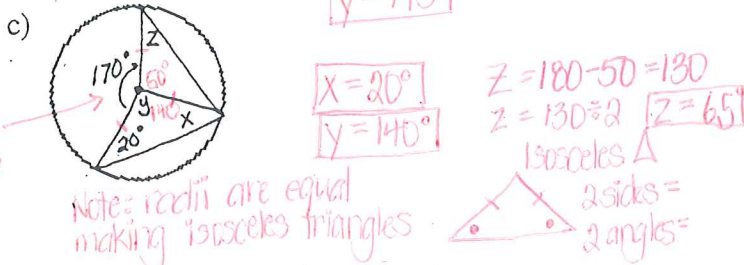 c)
z
170°
50°
y
140°
x
20°
x = 20°
y = 140°
z = 180-50 = 130
z = 130÷2 z = 65°
Isosceles Δ
2 sides =
2 angles =
Note: radii are equal
making isosceles triangles